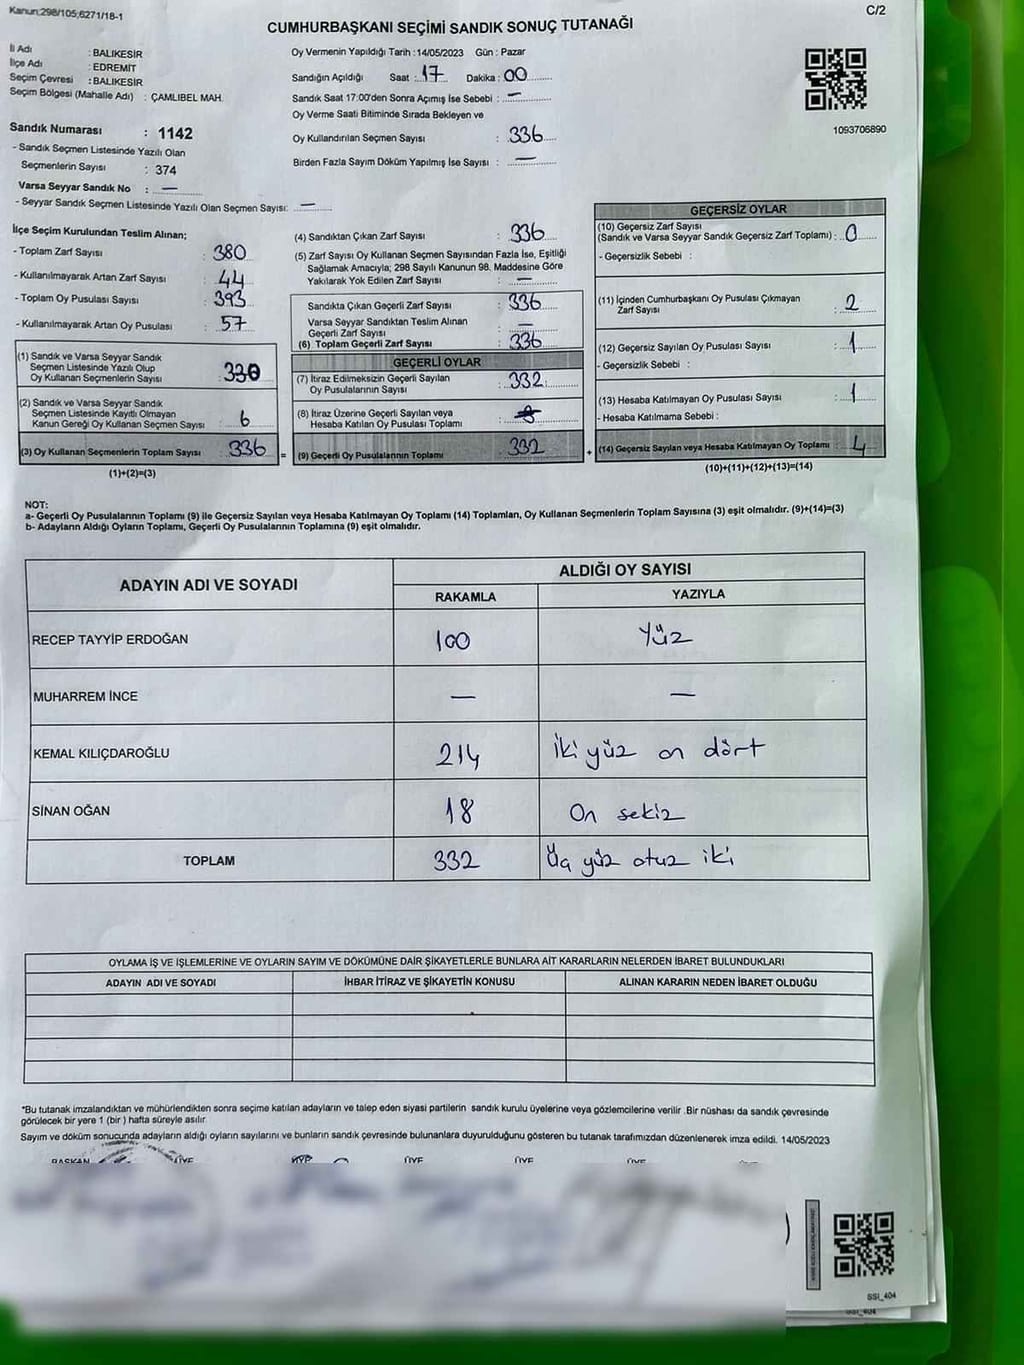 Kanun:298/105;6271/18-1
C/2
CUMHURBAŞKANI SEÇİMİ SANDIK SONUÇ TUTANAĞI
İl Adı : BALIKESİR
İlçe Adı : EDREMİT
Seçim Çevresi : BALIKESİR
Seçim Bölgesi (Mahalle Adı) : ÇAMLIBEL MAH.
Sandık Numarası : 1142
- Sandık Seçmen Listesinde Yazılı Olan
Seçmenlerin Sayısı : 374
Varsa Seyyar Sandık No : —
- Seyyar Sandık Seçmen Listesinde Yazılı Olan Seçmen Sayısı: —
Oy Vermenin Yapıldığı Tarih : 14/05/2023 Gün : Pazar
Sandığın Açıldığı Saat : 17 Dakika : 00
Sandık Saat 17:00'den Sonra Açımış İse Sebebi : —
Oy Verme Saati Bitiminde Sırada Bekleyen ve
Oy Kullandırılan Seçmen Sayısı : 336
Birden Fazla Sayım Döküm Yapılmış İse Sayısı : —
1093706890
İlçe Seçim Kurulundan Teslim Alınan;
- Toplam Zarf Sayısı : 380
- Kullanılmayarak Artan Zarf Sayısı : 44
- Toplam Oy Pusulası Sayısı : 393
- Kullanılmayarak Artan Oy Pusulası : 57
(1) Sandık ve Varsa Seyyar Sandık
Seçmen Listesinde Yazılı Olup
Oy Kullanan Seçmenlerin Sayısı : 330
(2) Sandık ve Varsa Seyyar Sandık
Seçmen Listesinde Kayıtlı Olmayan
Kanun Gereği Oy Kullanan Seçmen Sayısı : 6
(3) Oy Kullanan Seçmenlerin Toplam Sayısı : 336 =
(1)+(2)=(3)
(4) Sandıktan Çıkan Zarf Sayısı : 336
(5) Zarf Sayısı Oy Kullanan Seçmen Sayısından Fazla İse, Eşitliği
Sağlamak Amacıyla; 298 Sayılı Kanunun 98. Maddesine Göre
Yakılarak Yok Edilen Zarf Sayısı : —
Sandıkta Çıkan Geçerli Zarf Sayısı : 336
Varsa Seyyar Sandıktan Teslim Alınan
Geçerli Zarf Sayısı : —
(6) Toplam Geçerli Zarf Sayısı : 336
GEÇERLİ OYLAR
(7) İtiraz Edilmeksizin Geçerli Sayılan
Oy Pusulalarının Sayısı : 332
(8) İtiraz Üzerine Geçerli Sayılan veya
Hesaba Katılan Oy Pusulası Toplamı :
(9) Geçerli Oy Pusulalarının Toplamı : 332 +
GEÇERSİZ OYLAR
(10) Geçersiz Zarf Sayısı
(Sandık ve Varsa Seyyar Sandık Geçersiz Zarf Toplamı) : 0
- Geçersizlik Sebebi :
(11) İçinden Cumhurbaşkanı Oy Pusulası Çıkmayan
Zarf Sayısı : 2
(12) Geçersiz Sayılan Oy Pusulası Sayısı : 1
- Geçersizlik Sebebi :
(13) Hesaba Katılmayan Oy Pusulası Sayısı : 1
- Hesaba Katılmama Sebebi :
(14) Geçersiz Sayılan veya Hesaba Katılmayan Oy Toplamı : 4
(10)+(11)+(12)+(13)=(14)
NOT:
a- Geçerli Oy Pusulalarının Toplamı (9) ile Geçersiz Sayılan veya Hesaba Katılmayan Oy Toplamı (14) Toplamları, Oy Kullanan Seçmenlerin Toplam Sayısına (3) eşit olmalıdır. (9)+(14)=(3)
b- Adayların Aldığı Oyların Toplamı, Geçerli Oy Pusulalarının Toplamına (9) eşit olmalıdır.
ADAYIN ADI VE SOYADI ALDIĞI OY SAYISI
RAKAMLA YAZIYLA
RECEP TAYYİP ERDOĞAN 100 Yüz
MUHARREM İNCE — —
KEMAL KILIÇDAROĞLU 214 İki yüz on dört
SİNAN OĞAN 18 On sekiz
TOPLAM 332 Üç yüz otuz iki
OYLAMA İŞ VE İŞLEMLERİNE VE OYLARIN SAYIM VE DÖKÜMÜNE DAİR ŞİKAYETLERLE BUNLARA AİT KARARLARIN NELERDEN İBARET BULUNDUKLARI
ADAYIN ADI VE SOYADI İHBAR İTİRAZ VE ŞİKAYETİN KONUSU ALINAN KARARIN NEDEN İBARET OLDUĞU
*Bu tutanak imzalandıktan ve mühürlendikten sonra seçime katılan adayların ve talep eden siyasi partilerin sandık kurulu üyelerine veya gözlemcilerine verilir .Bir nüshası da sandık çevresinde
görülecek bir yere 1 (bir ) hafta süreyle asılır.
Sayım ve döküm sonucunda adayların aldığı oyların sayılarını ve bunların sandık çevresinde bulunanlara duyurulduğunu gösteren bu tutanak tarafımızdan düzenlenerek imza edildi. 14/05/2023
BAŞKAN ÜYE ÜYE ÜYE ÜYE
SSI_404
SSI_404